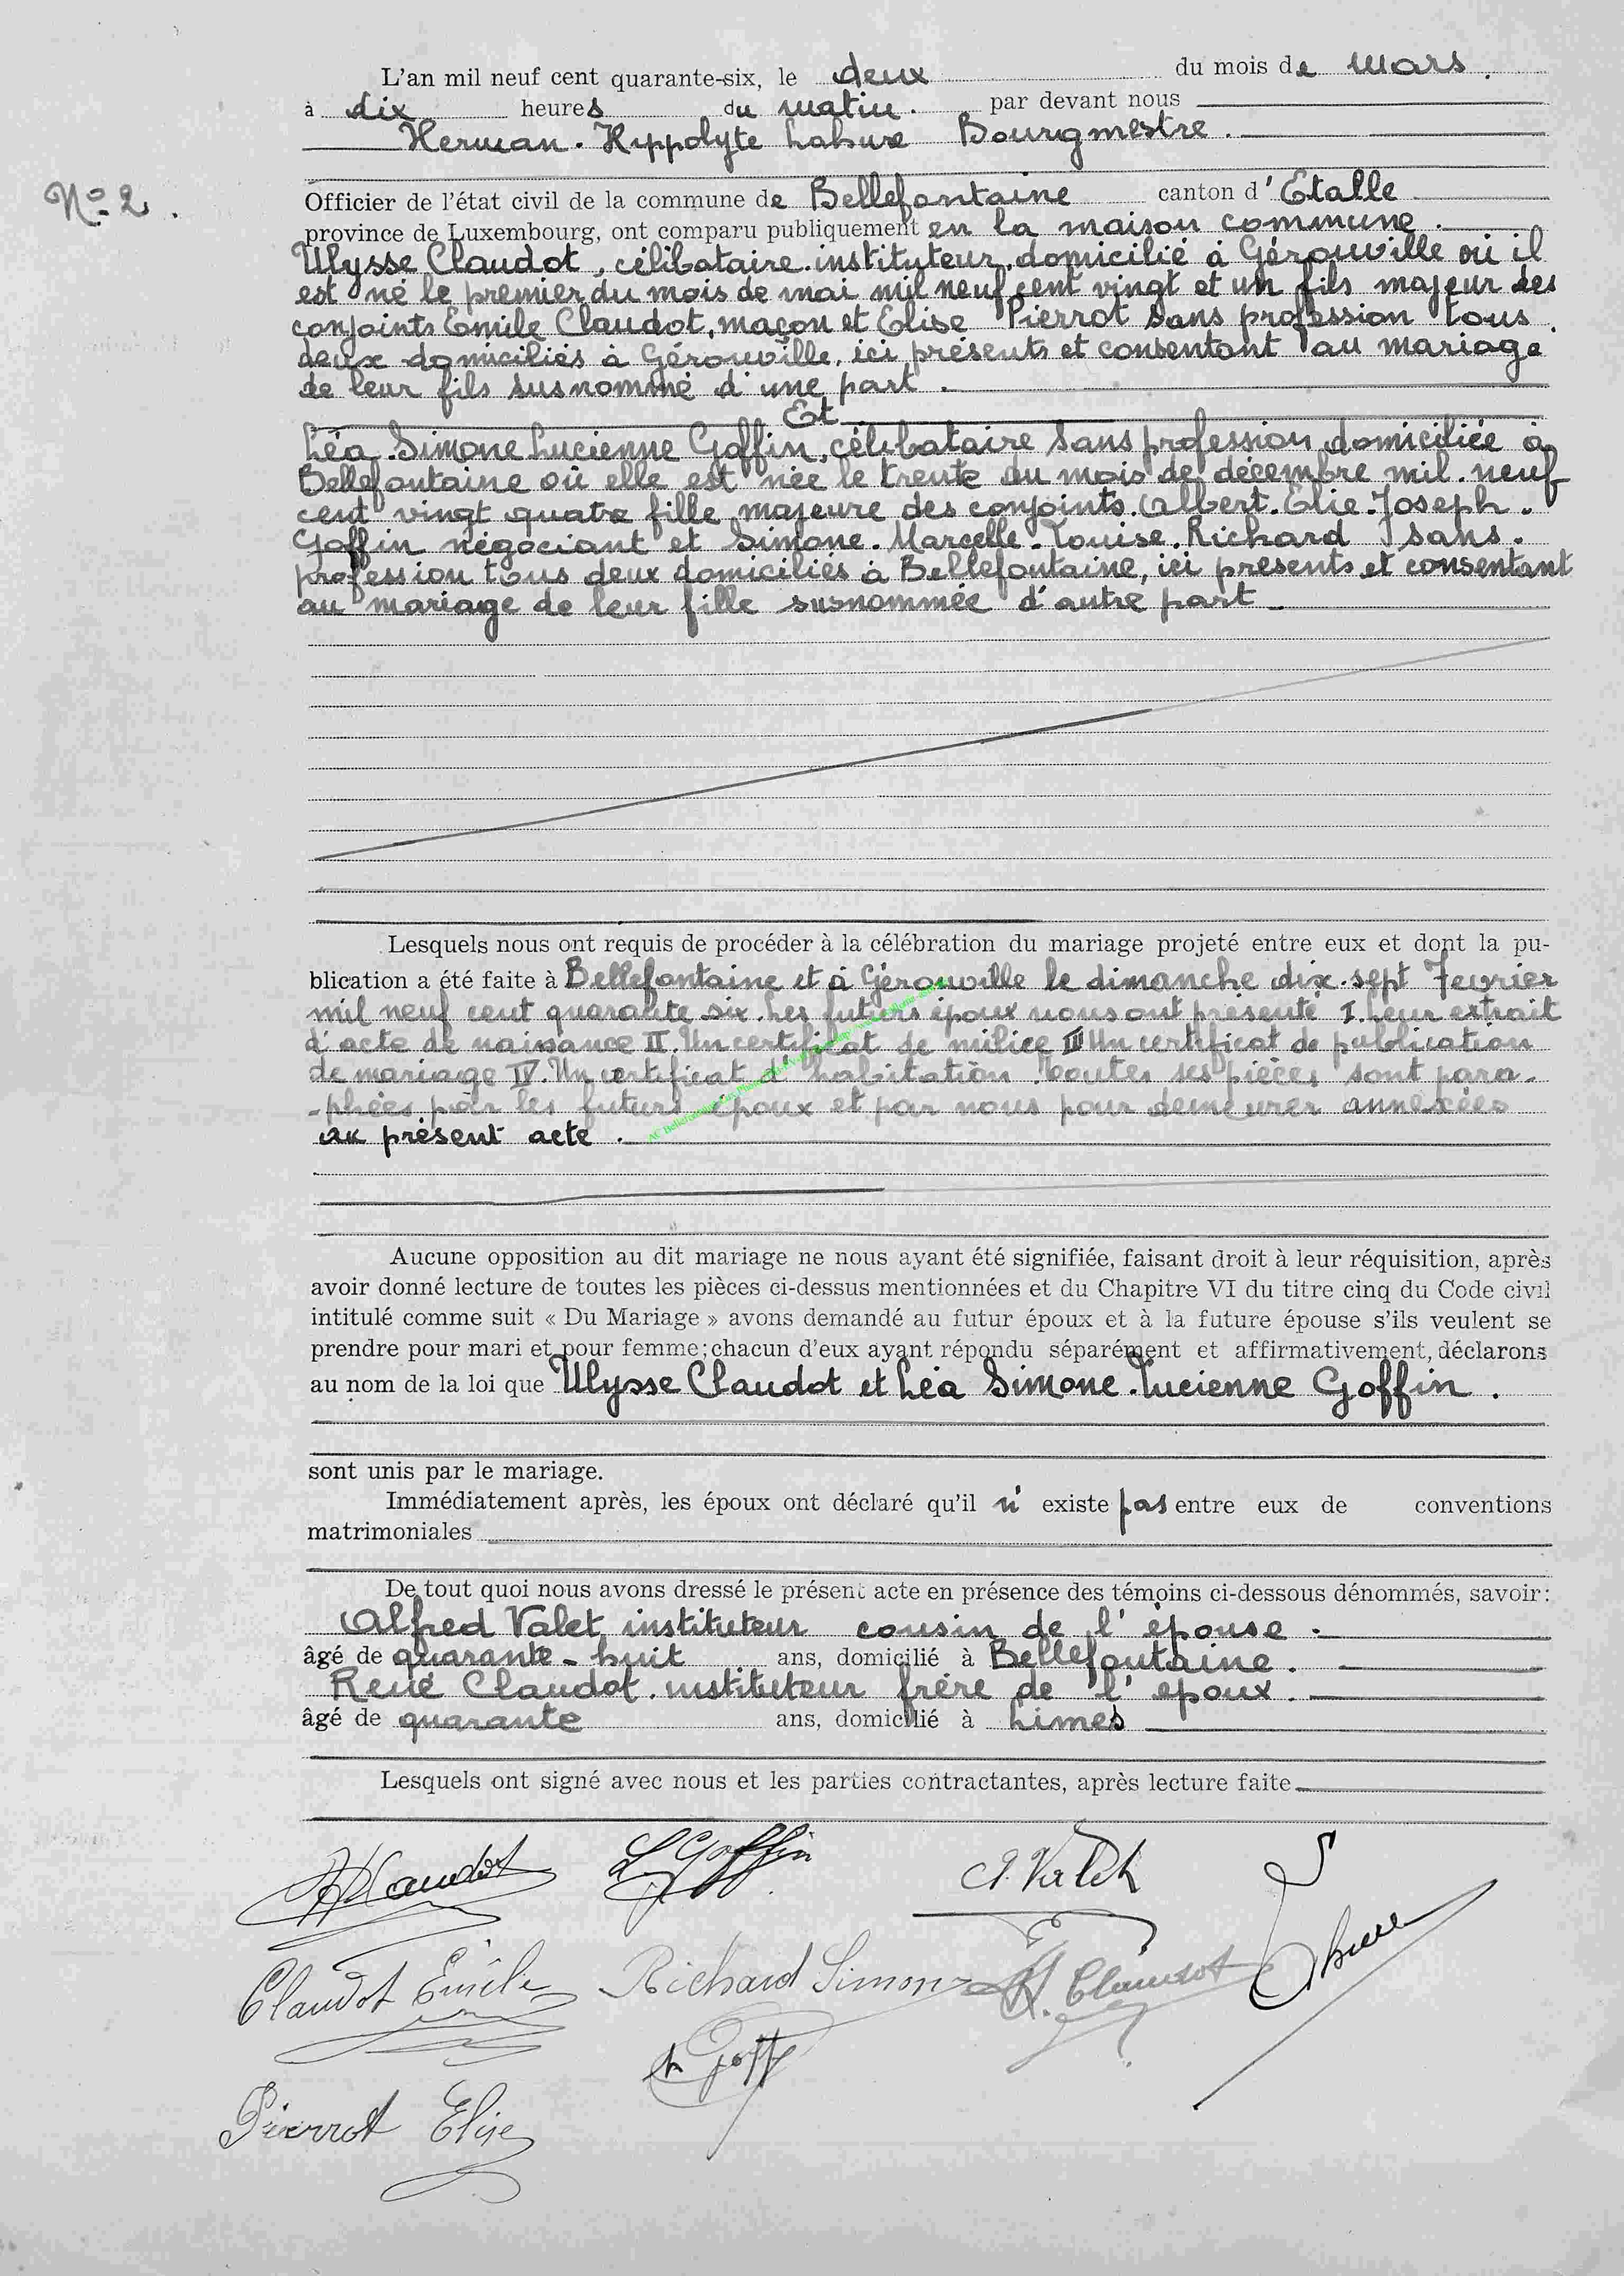 L'an mil neuf cent quarante-six, le deux du mois de mars.
à dix heures du matin. par devant nous
Herman. Hippolyte Lahure Bourgmestre.
N° 2.
Officier de l'état civil de la commune de Bellefontaine canton d'Etalle
province de Luxembourg, ont comparu publiquement en la maison commune.
Ulysse Claudot, célibataire. instituteur. domicilié à Gérouville où il
est né le premier du mois de mai mil neuf cent vingt et un fils majeur des
conjoints Emile Claudot, maçon et Elise Pierrot sans profession tous
deux domiciliés à Gérouville, ici présents et consentant au mariage
de leur fils susnommé d'une part.
Et
Léa Simone Lucienne Goffin, célibataire sans profession domiciliée à
Bellefontaine où elle est née le trente du mois de décembre mil. neuf
cent vingt quatre fille majeure des conjoints. Albert. Elie. Joseph.
Goffin négociant et Simone. Marcelle. Louise. Richard sans.
profession tous deux domiciliés à Bellefontaine, ici présents et consentant
au mariage de leur fille susnommée d'autre part
Lesquels nous ont requis de procéder à la célébration du mariage projeté entre eux et dont la pu-
blication a été faite à Bellefontaine et à Gérouville le dimanche dix. sept Fevrier
mil neuf cent quarante six. Les futurs époux nous ont présenté I. Leur extrait
d'acte de naissance II. Un certificat de milice III Un certificat de publication
de mariage IV. Un certificat d'habitation. Toutes ses pièces sont para-
-phées par les futurs époux et par nous pour demeurer annexées
au présent acte.
Aucune opposition au dit mariage ne nous ayant été signifiée, faisant droit à leur réquisition, après
avoir donné lecture de toutes les pièces ci-dessus mentionnées et du Chapitre VI du titre cinq du Code civil
intitulé comme suit « Du Mariage » avons demandé au futur époux et à la future épouse s'ils veulent se
prendre pour mari et pour femme; chacun d'eux ayant répondu séparément et affirmativement, déclarons
au nom de la loi que Ulysse Claudot et Léa Simone. Lucienne Goffin.
sont unis par le mariage.
Immédiatement après, les époux ont déclaré qu'il n' existe pas entre eux de conventions
matrimoniales
De tout quoi nous avons dressé le présent acte en présence des témoins ci-dessous dénommés, savoir:
Alfred Valet instituteur cousin de l'épouse.
âgé de quarante-huit ans, domicilié à Bellefontaine.
René Claudot. instituteur frère de l'epoux.
âgé de quarante ans, domicilié à Limes
Lesquels ont signé avec nous et les parties contractantes, après lecture faite
Claudot L Goffin A. Valet
Claudot Emile Richard Simone R. Claudot Lahure
Pierrot Elise